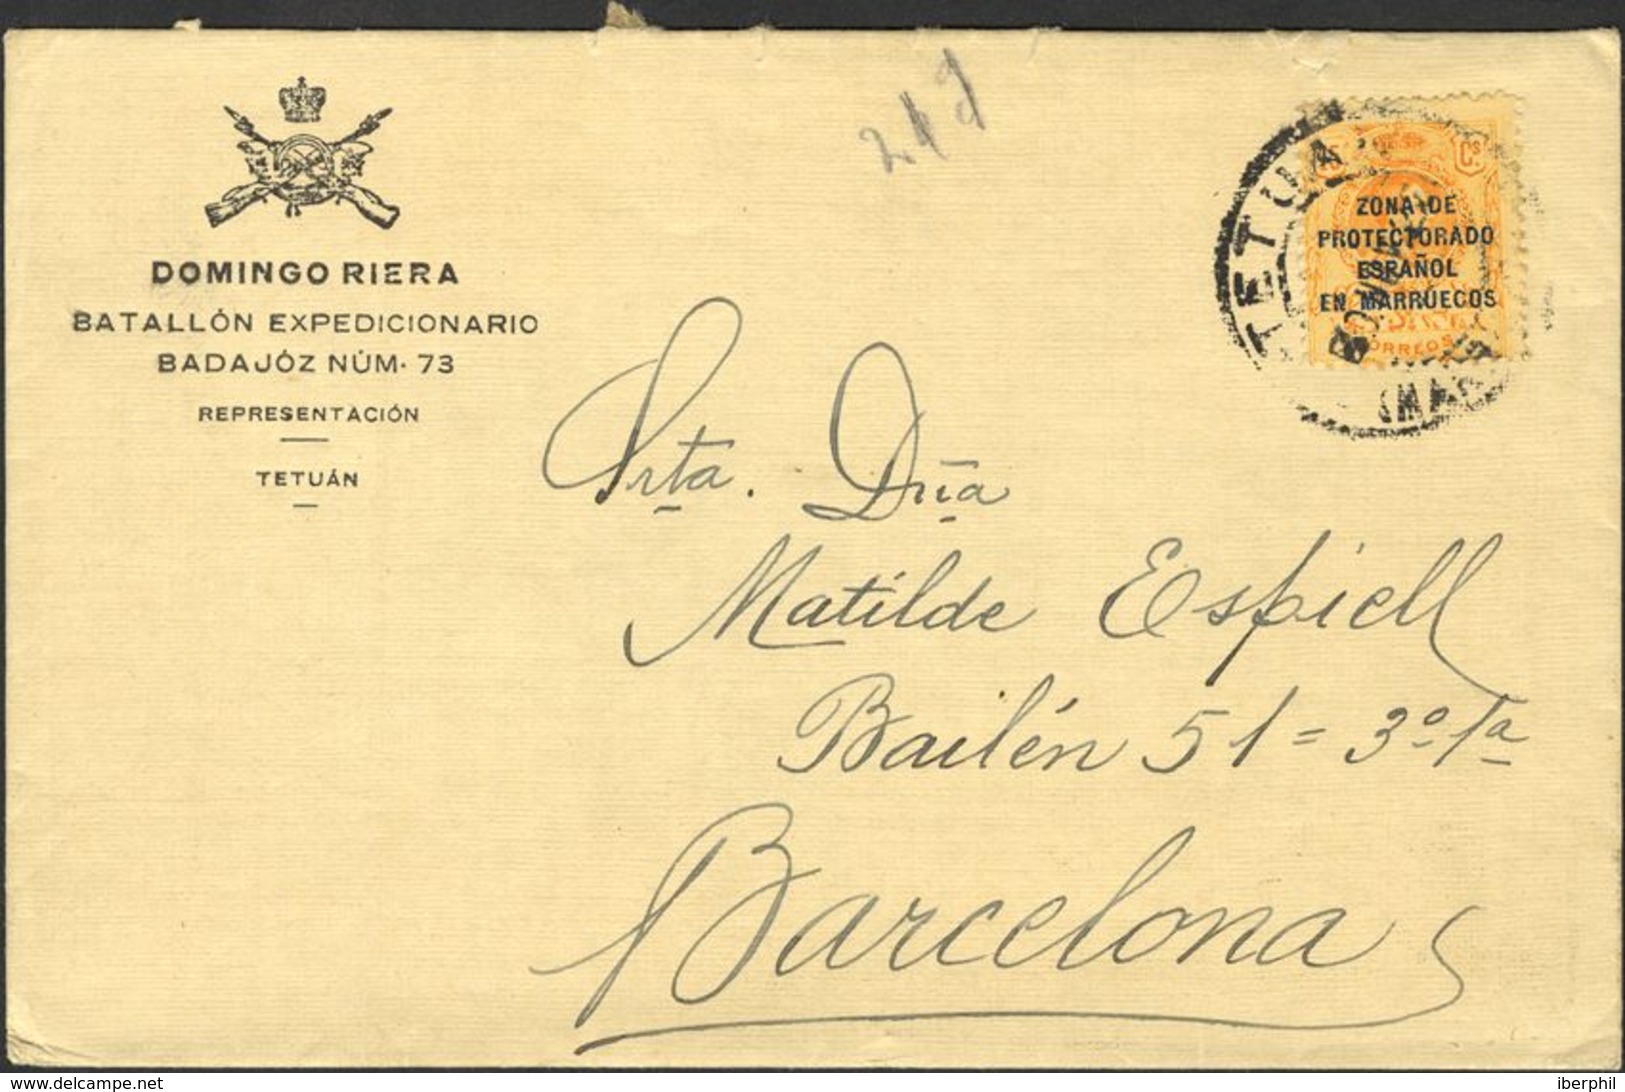 DOMINGO RIERA
BATALLÓN EXPEDICIONARIO
BADAJÓZ NÚM. 73
REPRESENTACIÓN
TETUÁN
TETUA
15 Cs
ZONA DE
PROTECTORADO
ESPAÑOL
EN MARRUECOS
CORREOS
Srta. Dña
Matilde Espiell
Bailén 51 = 3º 1ª
Barcelona
www.delcampe.net
iberphil